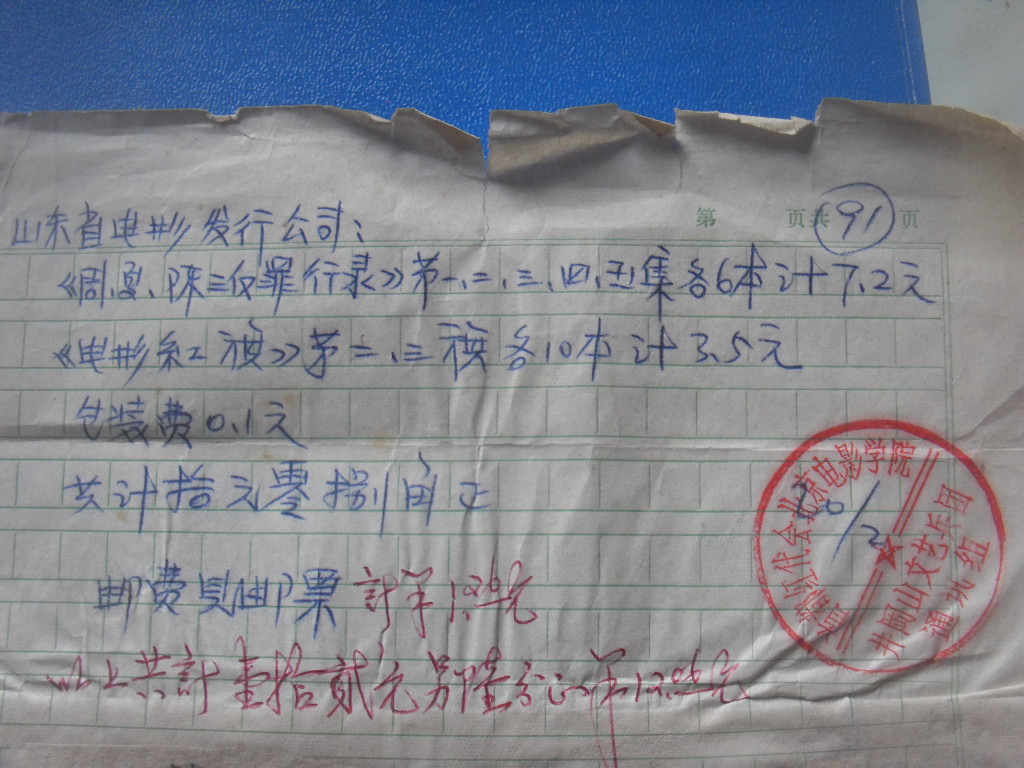 第 页共 91 页
山东省电影发行公司：
《周、夏、陈三反罪行录》第一、二、三、四、五集各6本计7.2元
《电影红旗》第二、三期各10本计3.5元
包装费0.1元
共计拾元零捌角正
邮费见邮票 計￥1.26元
以上共計壹拾貳元另陸分正￥12.06元
首都红代会北京电影学院
井岡山文艺兵团
通訊組
20/2